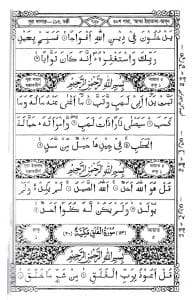 يَدْخُلُوْنَ فِيْ دِيْنِ اللّٰهِ اَفْوَاجًا فَسَبِّحْ بِحَمْدِ
رَبِّكَ وَاسْتَغْفِرْهُ اِنَّهٗ كَانَ تَوَّابًا
بِسْمِ اللّٰهِ الرَّحْمٰنِ الرَّحِيْمِ
تَبَّتْ يَدَا اَبِيْ لَهَبٍ وَّتَبَّ مَا اَغْنٰى عَنْهُ مَالُهٗ وَمَا
كَسَبَ سَيَصْلٰى نَارًا ذَاتَ لَهَبٍ وَّامْرَاَتُهٗ حَمَّالَةَ
الْحَطَبِ فِيْ جِيْدِهَا حَبْلٌ مِّنْ مَّسَدٍ
بِسْمِ اللّٰهِ الرَّحْمٰنِ الرَّحِيْمِ
قُلْ هُوَ اللّٰهُ اَحَدٌ اَللّٰهُ الصَّمَدُ لَمْ يَلِدْ وَلَمْ
يُوْلَدْ وَلَمْ يَكُنْ لَّهٗ كُفُوًا اَحَدٌ
سُوْرَةُ الْفَلَقِ مَكِّيَّةٌ
بِسْمِ اللّٰهِ الرَّحْمٰنِ الرَّحِيْمِ
قُلْ اَعُوْذُ بِرَبِّ الْفَلَقِ مِنْ شَرِّ مَا خَلَقَ